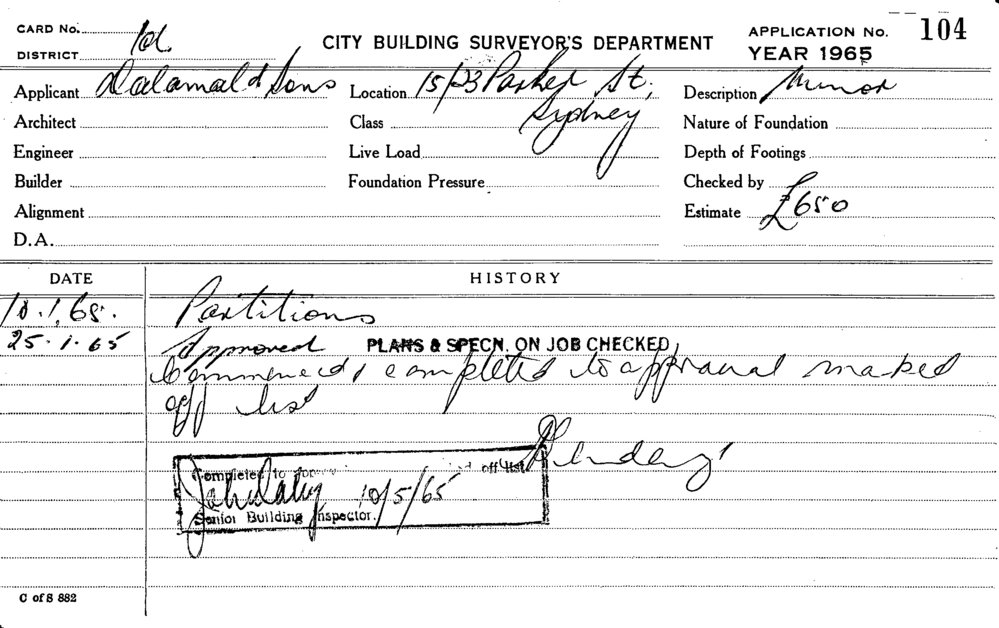 CARD No.
DISTRICT
CITY BUILDING SURVEYOR'S DEPARTMENT
APPLICATION No. 104
YEAR 1965
Applicant & Sons
Location 15/23 Parker St,
Sydney
Description Minor
Architect
Class
Nature of Foundation
Engineer
Live Load
Depth of Footings
Builder
Foundation Pressure
Checked by
Alignment
Estimate £650
D.A.
DATE HISTORY
Partitions
25.1.65 Approved PLANS & SPECN. ON JOB CHECKED
Commenced & completed to approval marked
off list
Completed to off list
10/5/65
Senior Building Inspector.
C of S 882